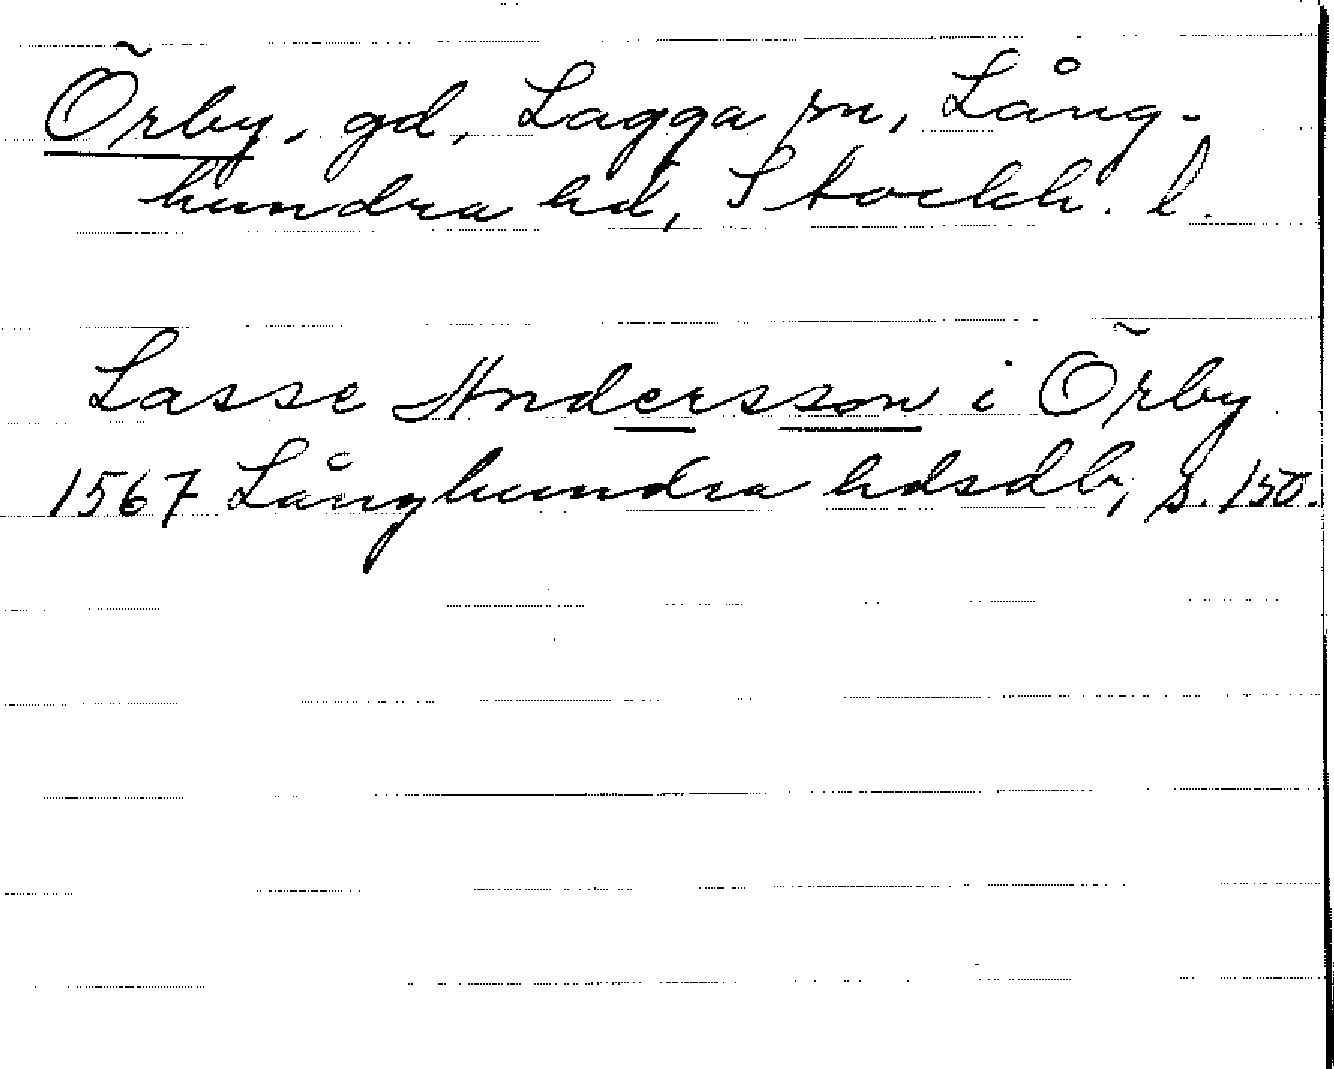 Örby, gd, Lagga sn, Lång-
hundra hd, Stockh. l.
Lasse Andersson i Örby
1567 Långhundra hdsdb, s. 150.